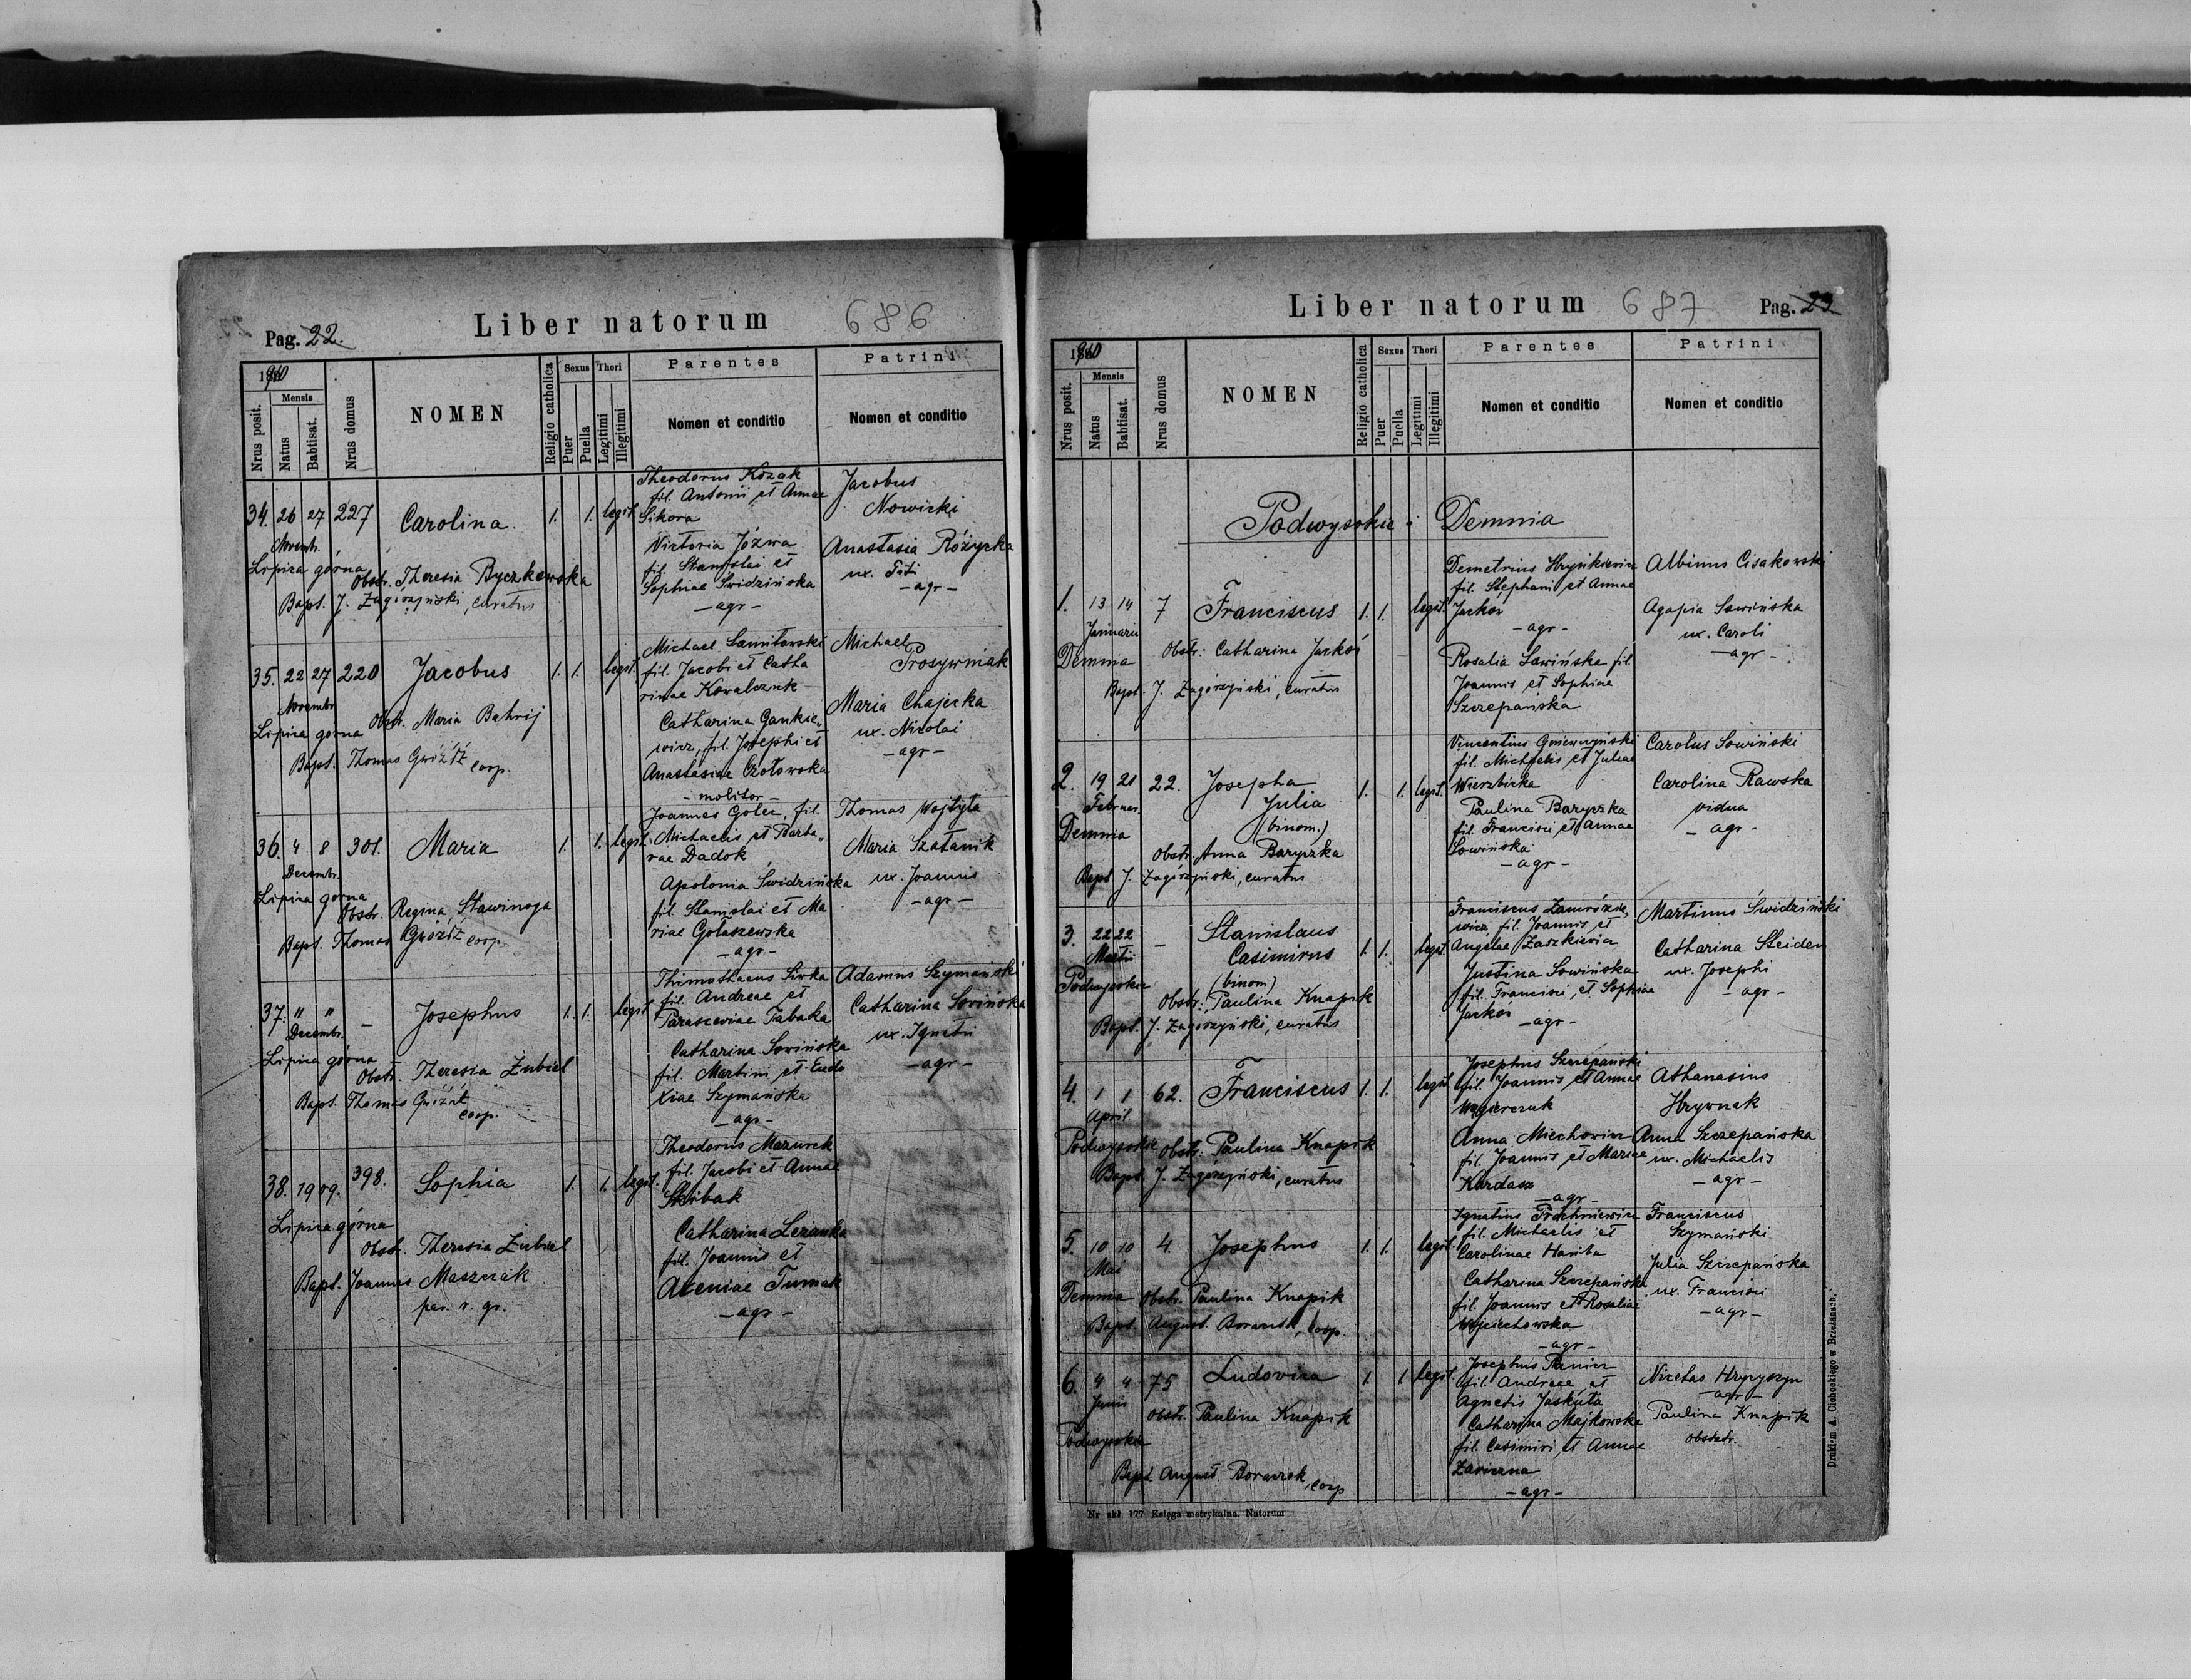 Pag. 22.
Liber natorum
686
1910
Nrus posit.
Mensis
Natus
Babtisat.
Nrus domus
NOMEN
Religio catholica
Sexus
Puer
Puella
Thori
Legitimi
Illegitimi
Parentes
Nomen et conditio
Patrini
Nomen et conditio
34. 26 27 227 Carolina. 1. 1. legit.
Novembr.
Lipica górna
Obstr. Theresia Byczkowska
Bapt. J. Zagórzyński, curatus
Theodorus Kozak
fil. Antonii et Annae
Sikora
Victoria Józwa
fil. Stanislai et
Sophiae Świdzińska
- agr -
Jacobus
Nowicki
Anastasia Różycka
ux. Titi
- agr -
35. 22 27 220 Jacobus 1. 1. legit.
Novembr.
Lipica górna
Obstr. Maria Bahrij
Bapt. Thomas Gwóźdź coop.
Michael
fil. Jacobi et Catha
rinae Kowalczuk
Catharina Gankie„
wicz, fil. Josephi et
Anastasiae Czołowska
- molitor -
Michael
Prosywniak
Maria Chajecka
ux. Nicolai
- agr -
36. 4 8 301. Maria 1. 1. legit.
Decembr.
Lipica górna
Obstr. Regina Stawinoga
Bapt. Thomas Gwóźdź coop.
Joannes Golec, fil.
Michaelis et Barba„
rae Dadok
Apolonia Świdzińska
fil. Stanislai et Ma
riae Gołaszewska
- agr -
Thomas Wojtyła
Maria Szatanik
ux. Joannis
- agr -
37. " " - Josephus 1. 1. legit.
Decembr.
Lipica górna
Obstr. Theresia Zubiel
Bapt. Thomas Gwóźdź
coop.
Thimothaeus Siwka
fil. Andreae et
Parasceviae Tabaka
Catharina Sowińska
fil. Martini et Eudo
xiae Szymańska
- agr -
Adamus Szymański
Catharina Sowińska
ux. Ignatii
- agr -
38. 1909. 398. Sophia 1. 1. legit.
Lipica górna
Obstr. Theresia Zubiel
Bapt. Joannes Maszczak
par. r. gr.
Theodorus Mazurek
fil. Jacobi et Annae
Skibak
Catharina Lezanka
fil. Joannis et
Tumak
- agr -
Liber natorum
687
Pag. 23
1910
Nrus posit.
Mensis
Natus
Babtisat.
Nrus domus
NOMEN
Religio catholica
Sexus
Puer
Puella
Thori
Legitimi
Illegitimi
Parentes
Nomen et conditio
Patrini
Nomen et conditio
Podwysokie i Demnia
1. 13 14 7 Franciscus 1. 1. legit.
Januarii
Demnia
Obstr: Catharina Jackoś
Bapt. J. Zagórzyński, curatus
Demetrius Hryńkiewicz
fil. Stephani et Annae
Jackoś
- agr -
Rosalia Sawińska fil.
Joannis et Sophiae
Szczepańska
Albinus Cisakowski
Agapia Sowińska
ux. Caroli
- agr -
2. 19 20 22. Josepha 1. 1. legit.
Februar.
Julia
(binom.)
Demnia
Obstr. Anna Baryczka
Bapt. J. Zagórzyński, curatus
Vincentius
fil. Michaelis et Juliae
Wierzbicka
Paulina Baryczka
fil. Francisci et Annae
Sowińska
- agr -
Carolus Sowiński
Carolina Rawska
vidua
- agr -
3. 22 22 - Stanislaus
Casimirus 1. 1. legit.
Martii
(binom)
Podwysokie
Obstr.: Paulina Knapik
Bapt. J. Zagórzyński, curatus
Franciscus
wicz fil. Joannis et
Angelae
Justina Sowińska
fil. Francisci, et Sophiae
Jackoś
- agr -
Martinus Świdziński
Catharina Steiden
ux. Josephi
- agr -
4. 1 1 62. Franciscus 1. 1. legit.
April
Podwysokie Obstr: Paulina Knapik
Bapt. J. Zagórzyński, curatus
Josephus Szczepański
fil. Joannis et Annae
Węgierczuk
Anna Miechowicz
fil. Joannis et Mariae
Kardasz
- agr -
Athanasius
Hrywnak
Anna Szczepańska
ux. Michaelis
- agr -
5. 10 10 4. Josephus 1. 1. legit.
Mai
Demnia Obstr. Paulina Knapik
Bapt. August. Boraczek, coop.
Ignatius Prachniewicz
fil. Michaelis et
Carolinae Haniba
Catharina Szczepańska
fil. Joannis et Rosaliae
Wojciechowska
- agr -
Franciscus
Szymański
Julia Szczepańska
ux. Francisci
- agr -
6. 4 4 75 Ludovica 1. 1. legit.
Junii
Obstr. Paulina Knapik
Podwysokie
Bapt. August. Boraczek, coop
Josephus
fil. Andreae et
Agnetis Jaskuła
Catharina Majkowska
fil. Casimiri, et Annae
- agr -
Nicetas Hrycyszyn
- agr -
Paulina Knapik
obstetr.
Nr skł. 177 Księga metrykalna. Natorum
Drukiem A. Cichockiego w Brzeżanach.